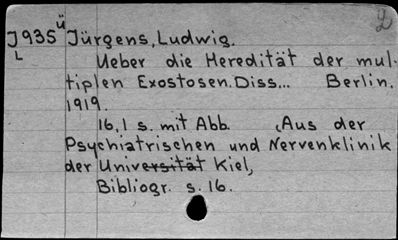 J935ü Jürgens, Ludwig.
L
Ueber die Heredität der mul-
tiplen Exostosen. Diss... Berlin.
1919.
16,1 s. mit Abb. (Aus der
Psychiatrischen und Nervenklinik
der Universität Kiel,
Bibliogr. s. 16.